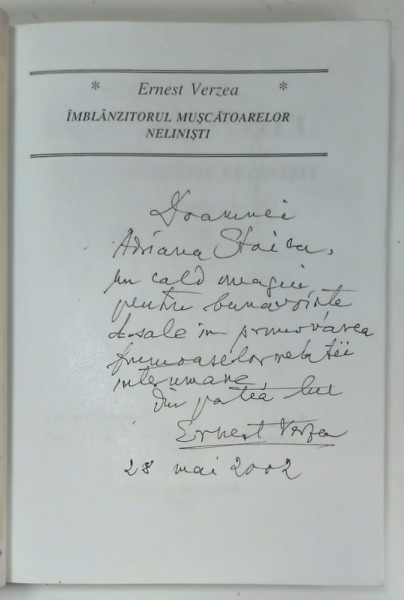 * Ernest Verzea *
ÎMBLÂNZITORUL MUŞCĂTOARELOR
NELINIŞTI
Doamnei
Adriana Stoica,
un cald omagiu
pentru bunavointa
d-sale in promovarea
frumoaselor relatii
interumane,
din partea lui
Ernest Verzea
28 mai 2002